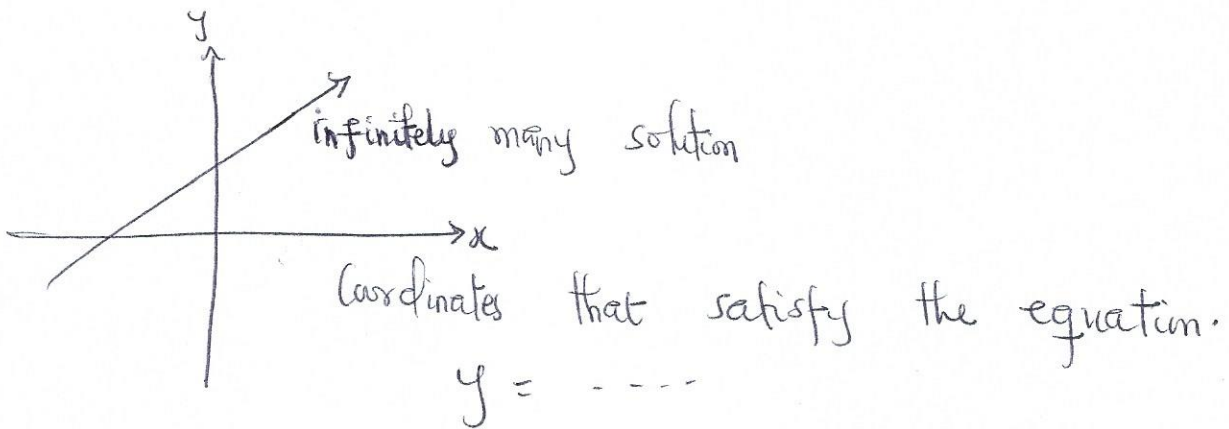 y
infinitely many solution
x
Coordinates that satisfy the equation.
y = - - - - -